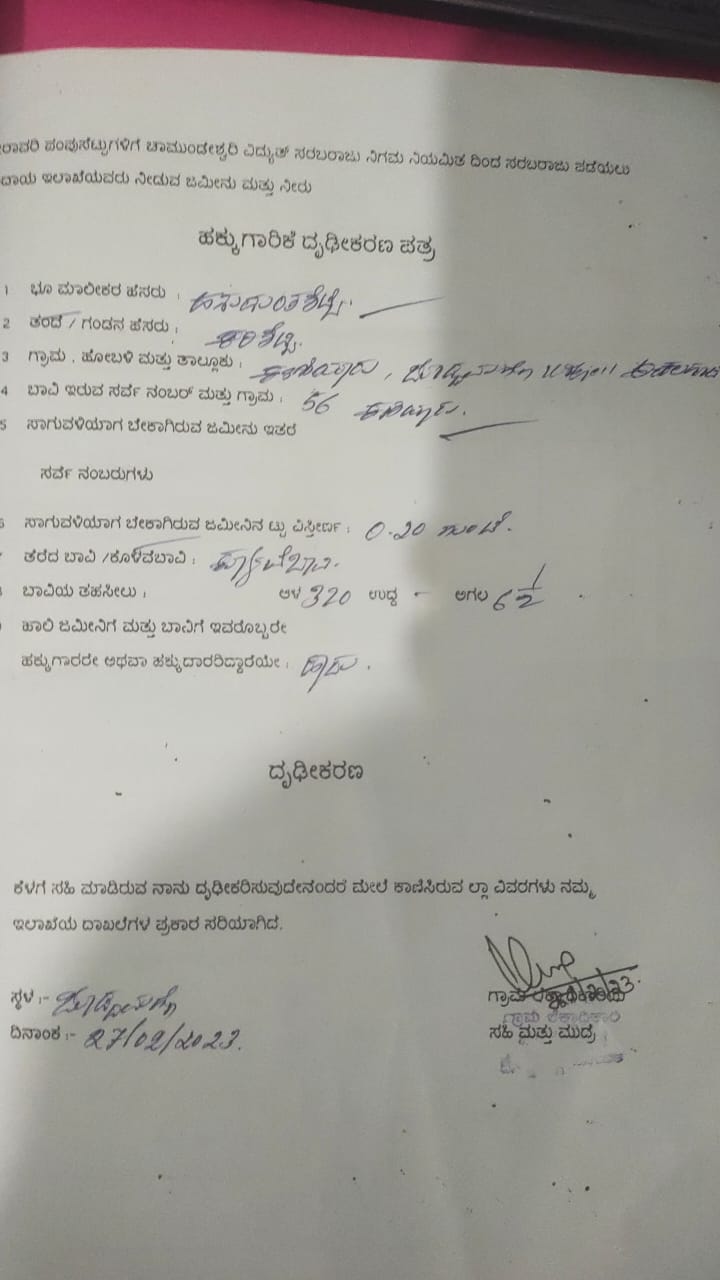 ಪಂಪುಸೆಟ್ಟುಗಳಿಗೆ ಚಾಮುಂಡೇಶ್ವರಿ ವಿದ್ಯುತ್ ಸರಬರಾಜು ನಿಗಮ ನಿಯಮಿತ ದಿಂದ ಸರಬರಾಜು ಪಡೆಯಲು
ಇಲಾಖೆಯವರು ನೀಡುವ ಜಮೀನು ಮತ್ತು ನೀರು
ಹಕ್ಕುಗಾರಿಕೆ ದೃಢೀಕರಣ ಪತ್ರ
1 ಭೂ ಮಾಲೀಕರ ಹೆಸರು :
2 ತಂದೆ / ಗಂಡನ ಹೆಸರು : ಕರಿಶೆಟ್ಟಿ.
3 ಗ್ರಾಮ , ಹೋಬಳಿ ಮತ್ತು ತಾಲ್ಲೂಕು :
4 ಬಾವಿ ಇರುವ ಸರ್ವೆ ನಂಬರ್ ಮತ್ತು ಗ್ರಾಮ : 56
5 ಸಾಗುವಳಿಯಾಗ ಬೇಕಾಗಿರುವ ಜಮೀನು ಇತರೆ
ಸರ್ವೆ ನಂಬರುಗಳು
ಸಾಗುವಳಿಯಾಗ ಬೇಕಾಗಿರುವ ಜಮೀನಿನ ಟ್ಟು ವಿಸ್ತೀರ್ಣ : 0.20 ಗುಂಟೆ.
ತೆರೆದ ಬಾವಿ /ಕೊಳವೆಬಾವಿ :
ಬಾವಿಯ ತಹಸೀಲು : ಆಳ 320 ಉದ್ದ - ಅಗಲ 6 1/2
ಹಾಲಿ ಜಮೀನಿಗೆ ಮತ್ತು ಬಾವಿಗೆ ಇವರೊಬ್ಬರೇ
ಹಕ್ಕುಗಾರರೇ ಅಥವಾ ಹಕ್ಕುದಾರರಿದ್ದಾರೆಯೇ : ಹೌದು .
ದೃಢೀಕರಣ
ಕೆಳಗೆ ಸಹಿ ಮಾಡಿರುವ ನಾನು ದೃಢೀಕರಿಸುವುದೇನೆಂದರೆ ಮೇಲೆ ಕಾಣಿಸಿರುವ ಲ್ಲಾ ವಿವರಗಳು ನಮ್ಮ
ಇಲಾಖೆಯ ದಾಖಲೆಗಳ ಪ್ರಕಾರ ಸರಿಯಾಗಿದೆ.
ಸ್ಥಳ :-
ಗ್ರಾಮ ಲೆಕ್ಕಾಧಿಕಾರಿಯ
ಗ್ರಾಮ ಲೆಕ್ಕಾಧಿಕಾರಿ
ದಿನಾಂಕ :- 27/02/2023.
ಸಹಿ ಮತ್ತು ಮುದ್ರೆ